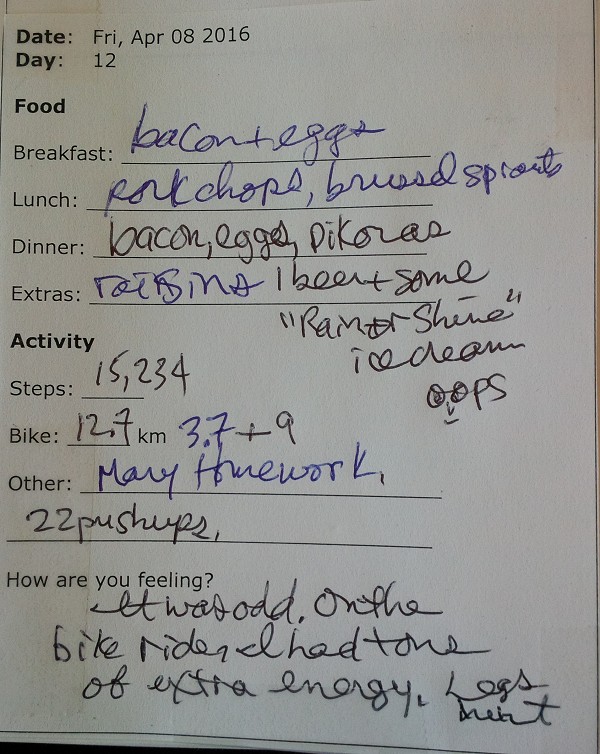 Date: Fri, Apr 08 2016
Day: 12
Food
Breakfast: bacon + eggs
Lunch: pork chops, brussel sprouts
Dinner: bacon, eggs, pikoras
Extras: raisins 1 beer + some
"Rain or Shine"
ice cream
oops
Activity
Steps: 15,234
Bike: 12.7 km 3.7 + 9
Other: Mary Homework,
22 pushups,
How are you feeling?
It was odd. On the
bike ride, I had tons
of extra energy. Legs
hurt